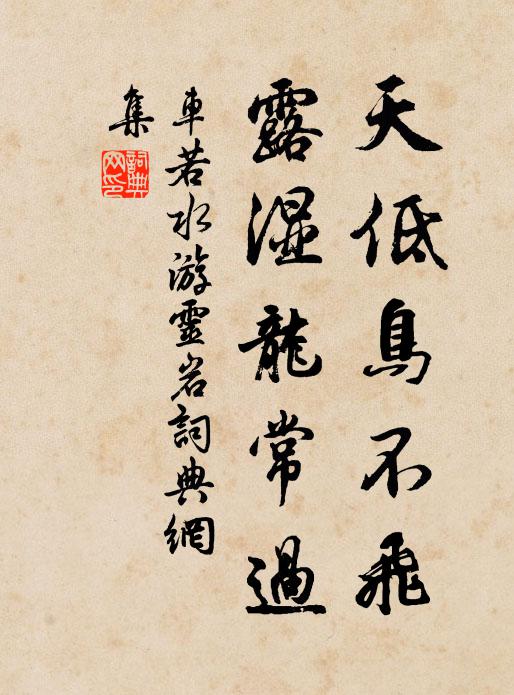 天低鳥不飛
露湿龍常過
車若水游靈岩詞典網
集
詞典
网印